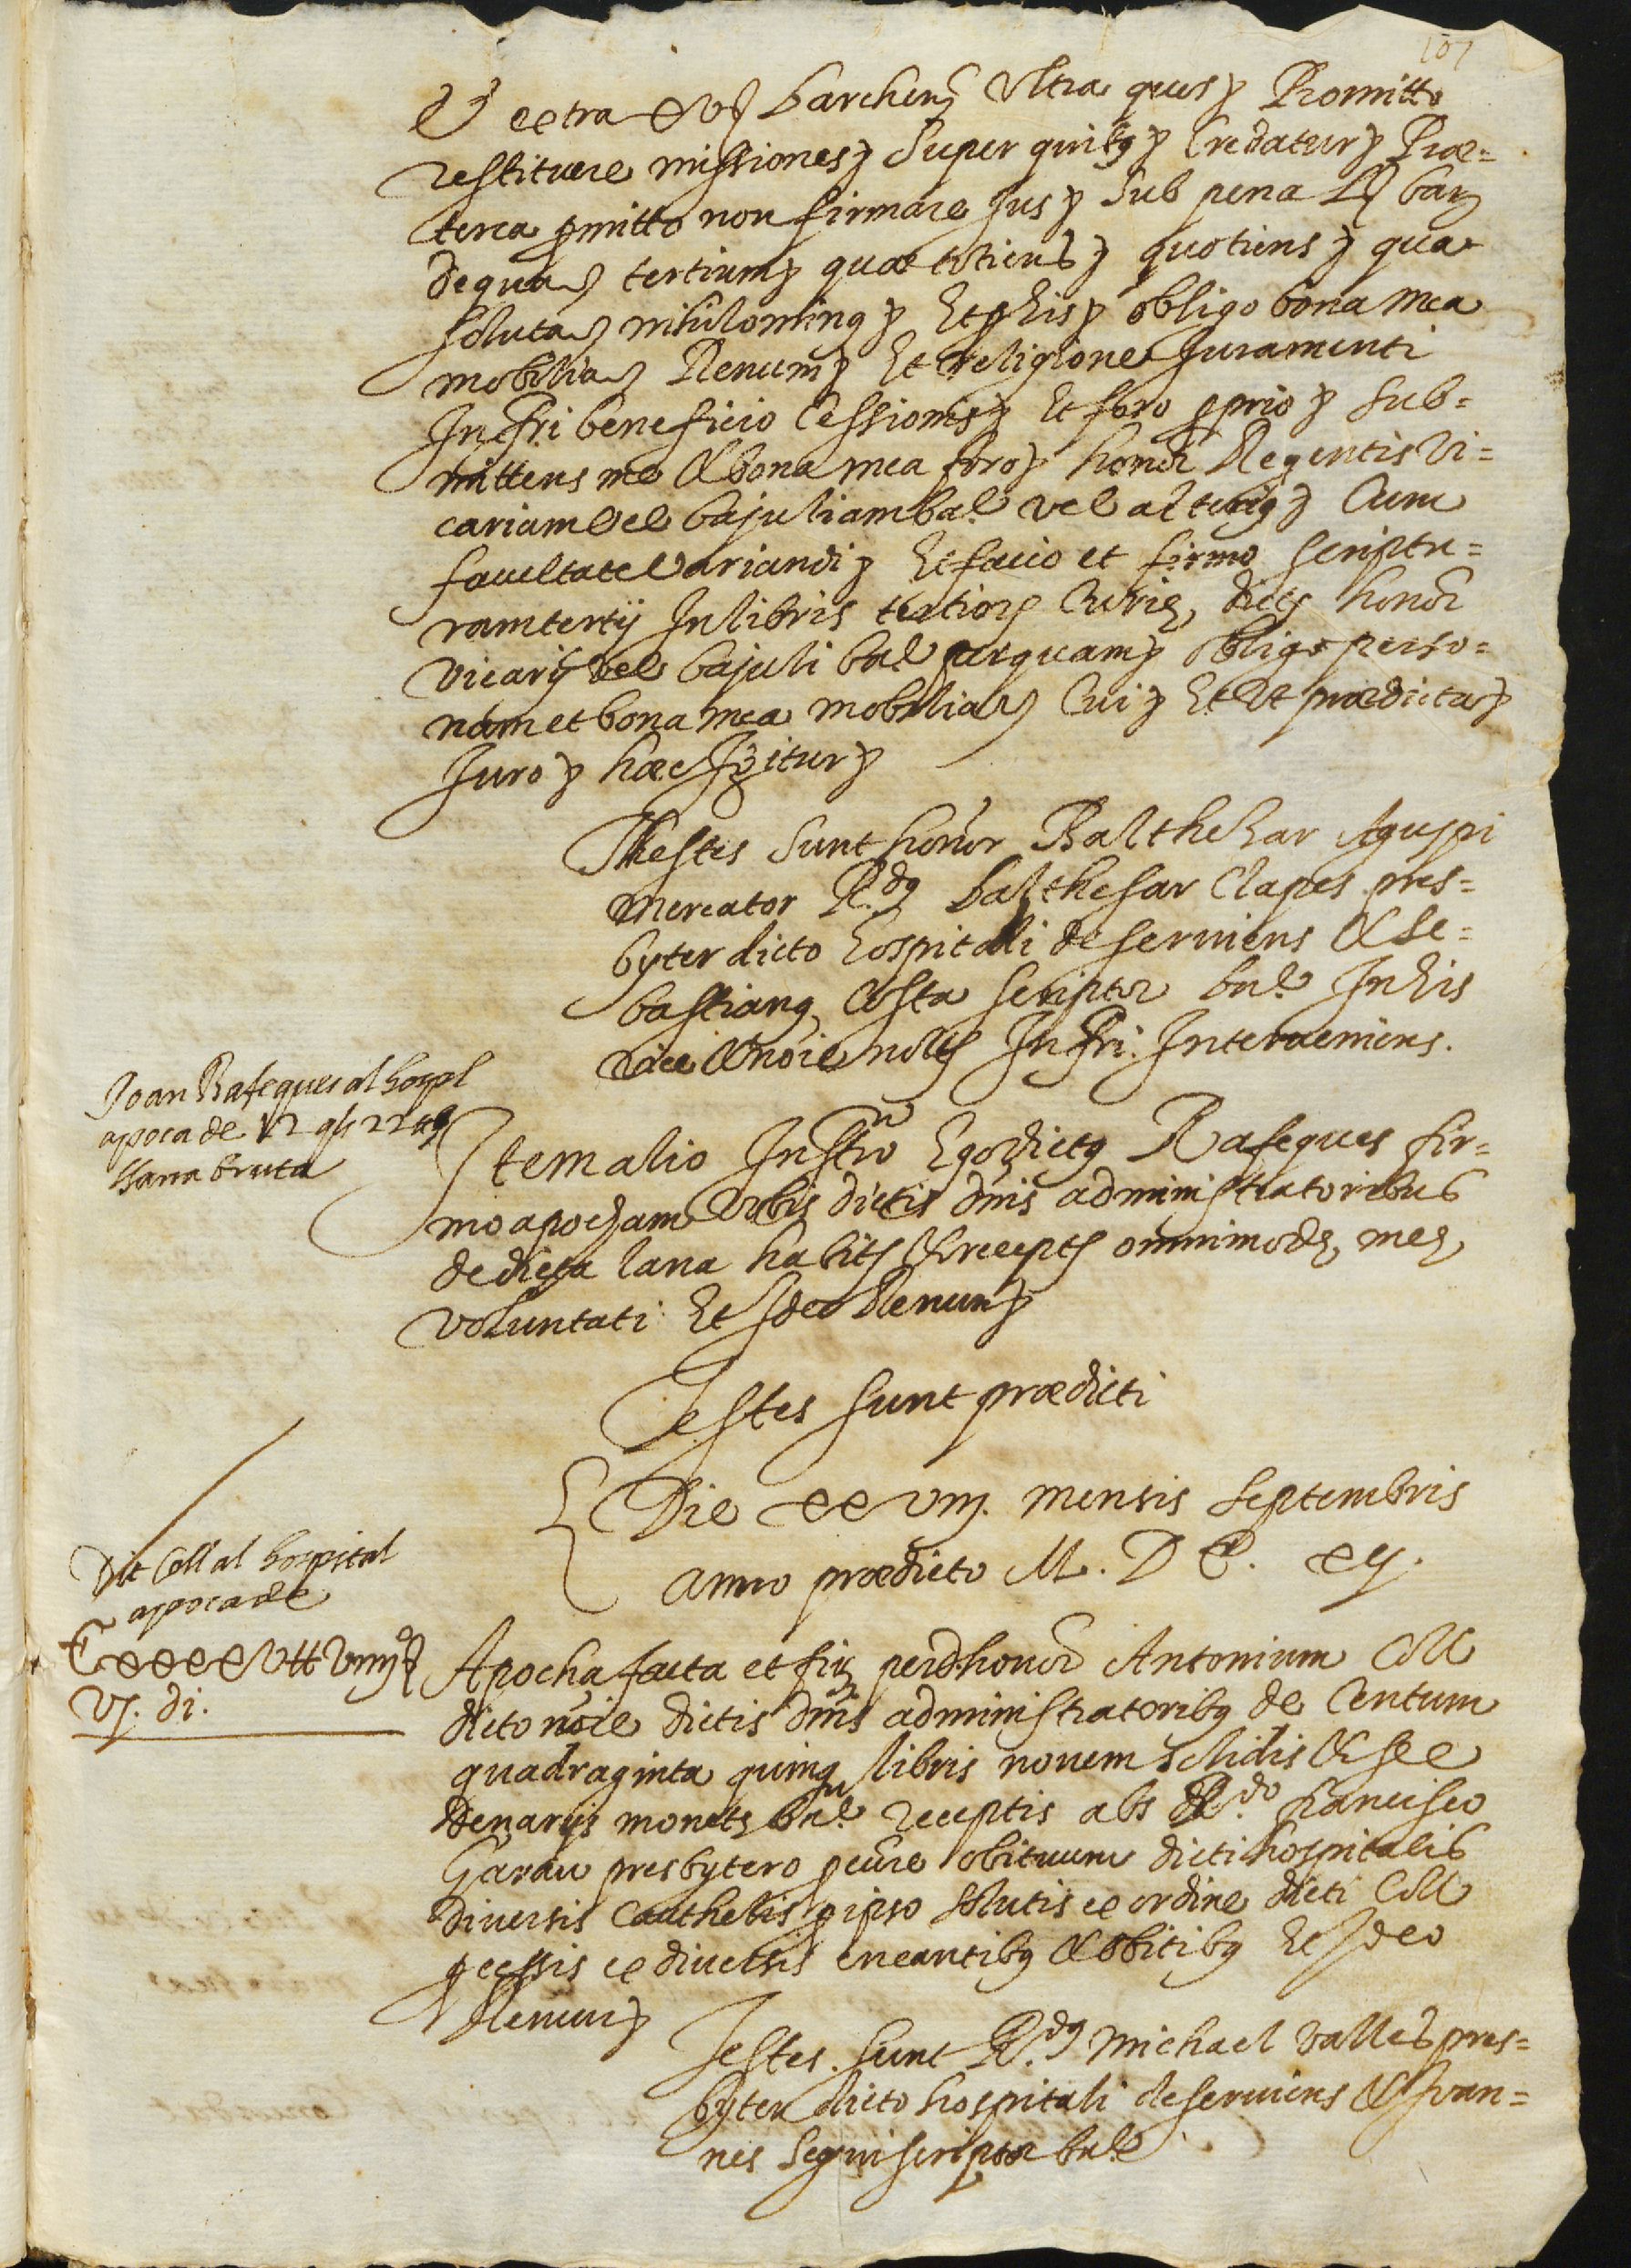 107
extra barchen ultra ques Promitto
restituere missiones Super quibus Credatur Præ=
terea promitto non firmare Jus sub pena bar
dequa tertium quæ totiens quotiens qua
soluta nihilominus Et pro his obligo bona mea
mobilia Renum Et religione Juramenti
Infri beneficio Cessionis Et foro proprio sub=
mittens me & bona mea foro honor Regentis Vi=
cariam vel bajuliam bar vel alterius Cum
facultate Variandi Et facio et firmo scriptu=
ram tertij In libris tertiorum Curie, dicts honor
vicarij vel bajuli bar obligo perso=
nam et bona mea mobilia Cui Et Ut prædicta
Juro hæc Igitur
Testes Sunt honor Balthezar Aguspi
mercator R.dus balthesar Clapes pres=
byter dicto hospitali deserviens & Se=
bastianus Costa scriptor barne In his
vice & noie nots Infri. Interveniens.
Joan Rafeques al hospl
apoca de
llana bruta
Item alio Instro Ego dictus Rafeques fir=
mo apocham vobis dictis dnis administratoribus
de dicta lana habits & recepts omnimode, mee,
voluntati Et Ideo Renun
Testes sunt prædicti
Die xxviij. mensis Septembris
anno prædicto M. D C. xij.
Dit Coll al hospital
appoca de
Cxxxxv ll viiij s
vj. di.
Apocha facta et fir per d. honor Antonium Coll
dicto noie dictis dnis administratoribus de Centum
quadraginta quinq libris novem solidis & sex
Denarijs monets barne receptis abs R.do francisco
Garau presbytero procure obituum dicti hospitalis
diversis Cauthelis per ipso solutis ex ordine dicti Coll
processis ex diversis encantibus & obitibus Et Ideo
Renun
Testes. sunt R.dus Michael Valles pres=
byter dicto hospitali deserviens & Joan=
nes Segui scriptor barne.